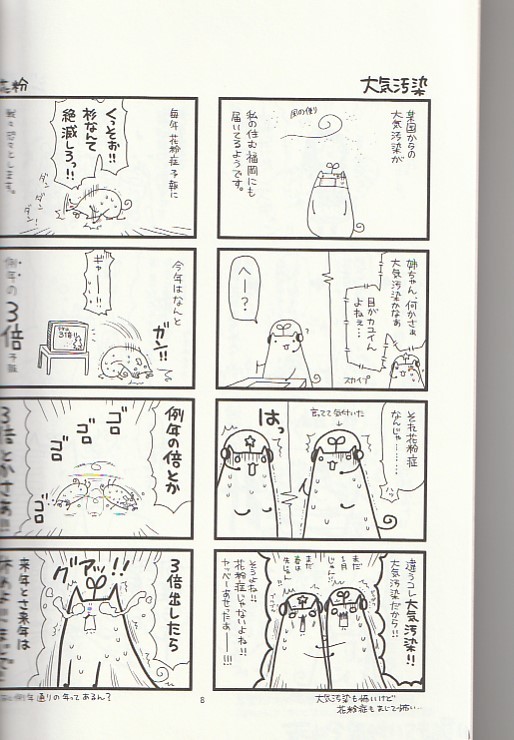 大気汚染
某国からの
大気汚染が
風の便り
私の住む福岡にも
届いてるようです。
姉ちゃん、何かさぁ
大気汚染かなぁ
目がカユイん
よねぇ…
スカイプ
へー?
それ花粉症
なんじゃ………
言ってて気付いた
はっ
違うコレ大気汚染!!
大気汚染だから!!
まだ
1月
じゃん!!
まだ
春は
先じゃん
そうよね!!
花粉症じゃないよね!!
ヤッベーあせったぁー!!!
大気汚染も怖いけど
花粉症もまじで怖い…
花粉
毎年 花粉症予報に
くっそぉ!!
杉なんて
絶滅しろっ!!
ダン
ダン
ダン!
戦々恐々とします。
今年はなんと
ガン!!
ギャー!!!
例年の
3倍
予報
例年の倍とか
ゴロ
ゴロ
ゴロ
ゴロ
3倍とかさぁ!!
3倍出したら
グアッ!!
来年とさ来年は
休めよ!!
例年通りの年ってあるん?
8